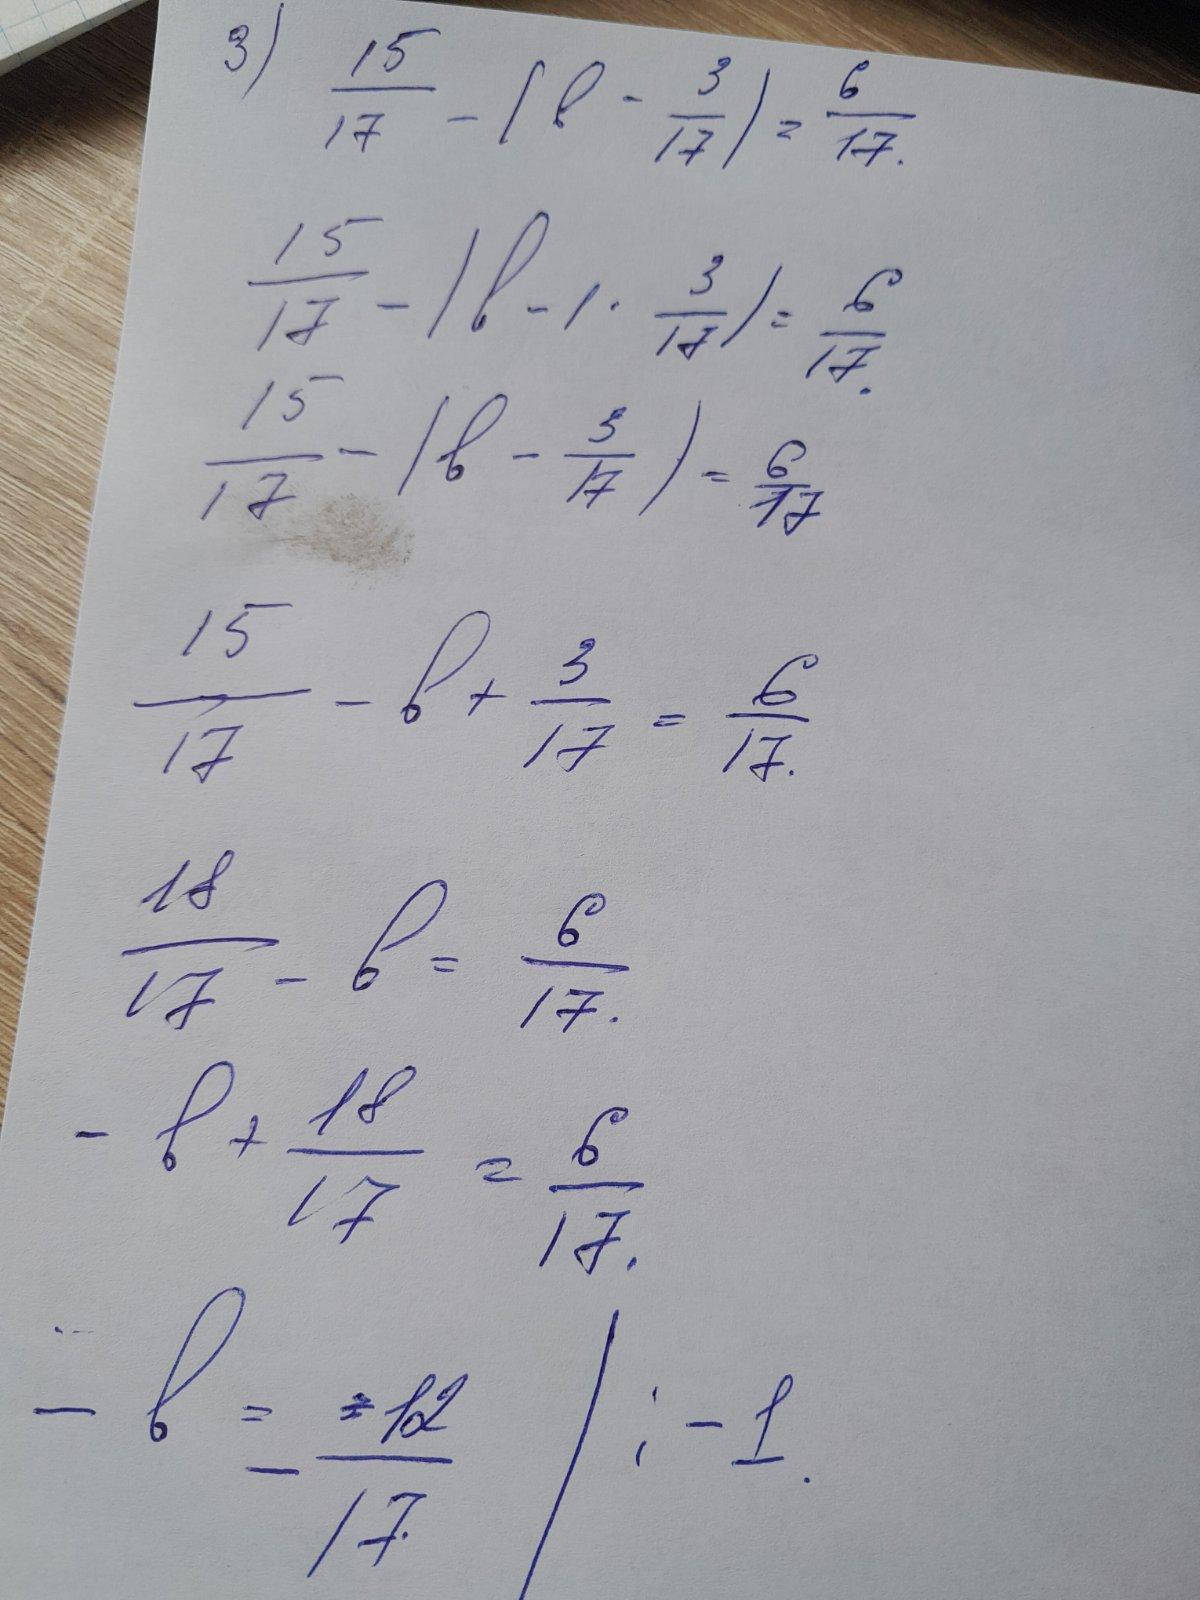 3) 15/17 - (b - 3/17) = 6/17.
15/17 - (b - 1 · 3/17) = 6/17.
15/17 - (b - 3/17) = 6/17
15/17 - b + 3/17 = 6/17.
18/17 - b = 6/17.
- b + 18/17 = 6/17.
- b = - 12/17 | : - 1.